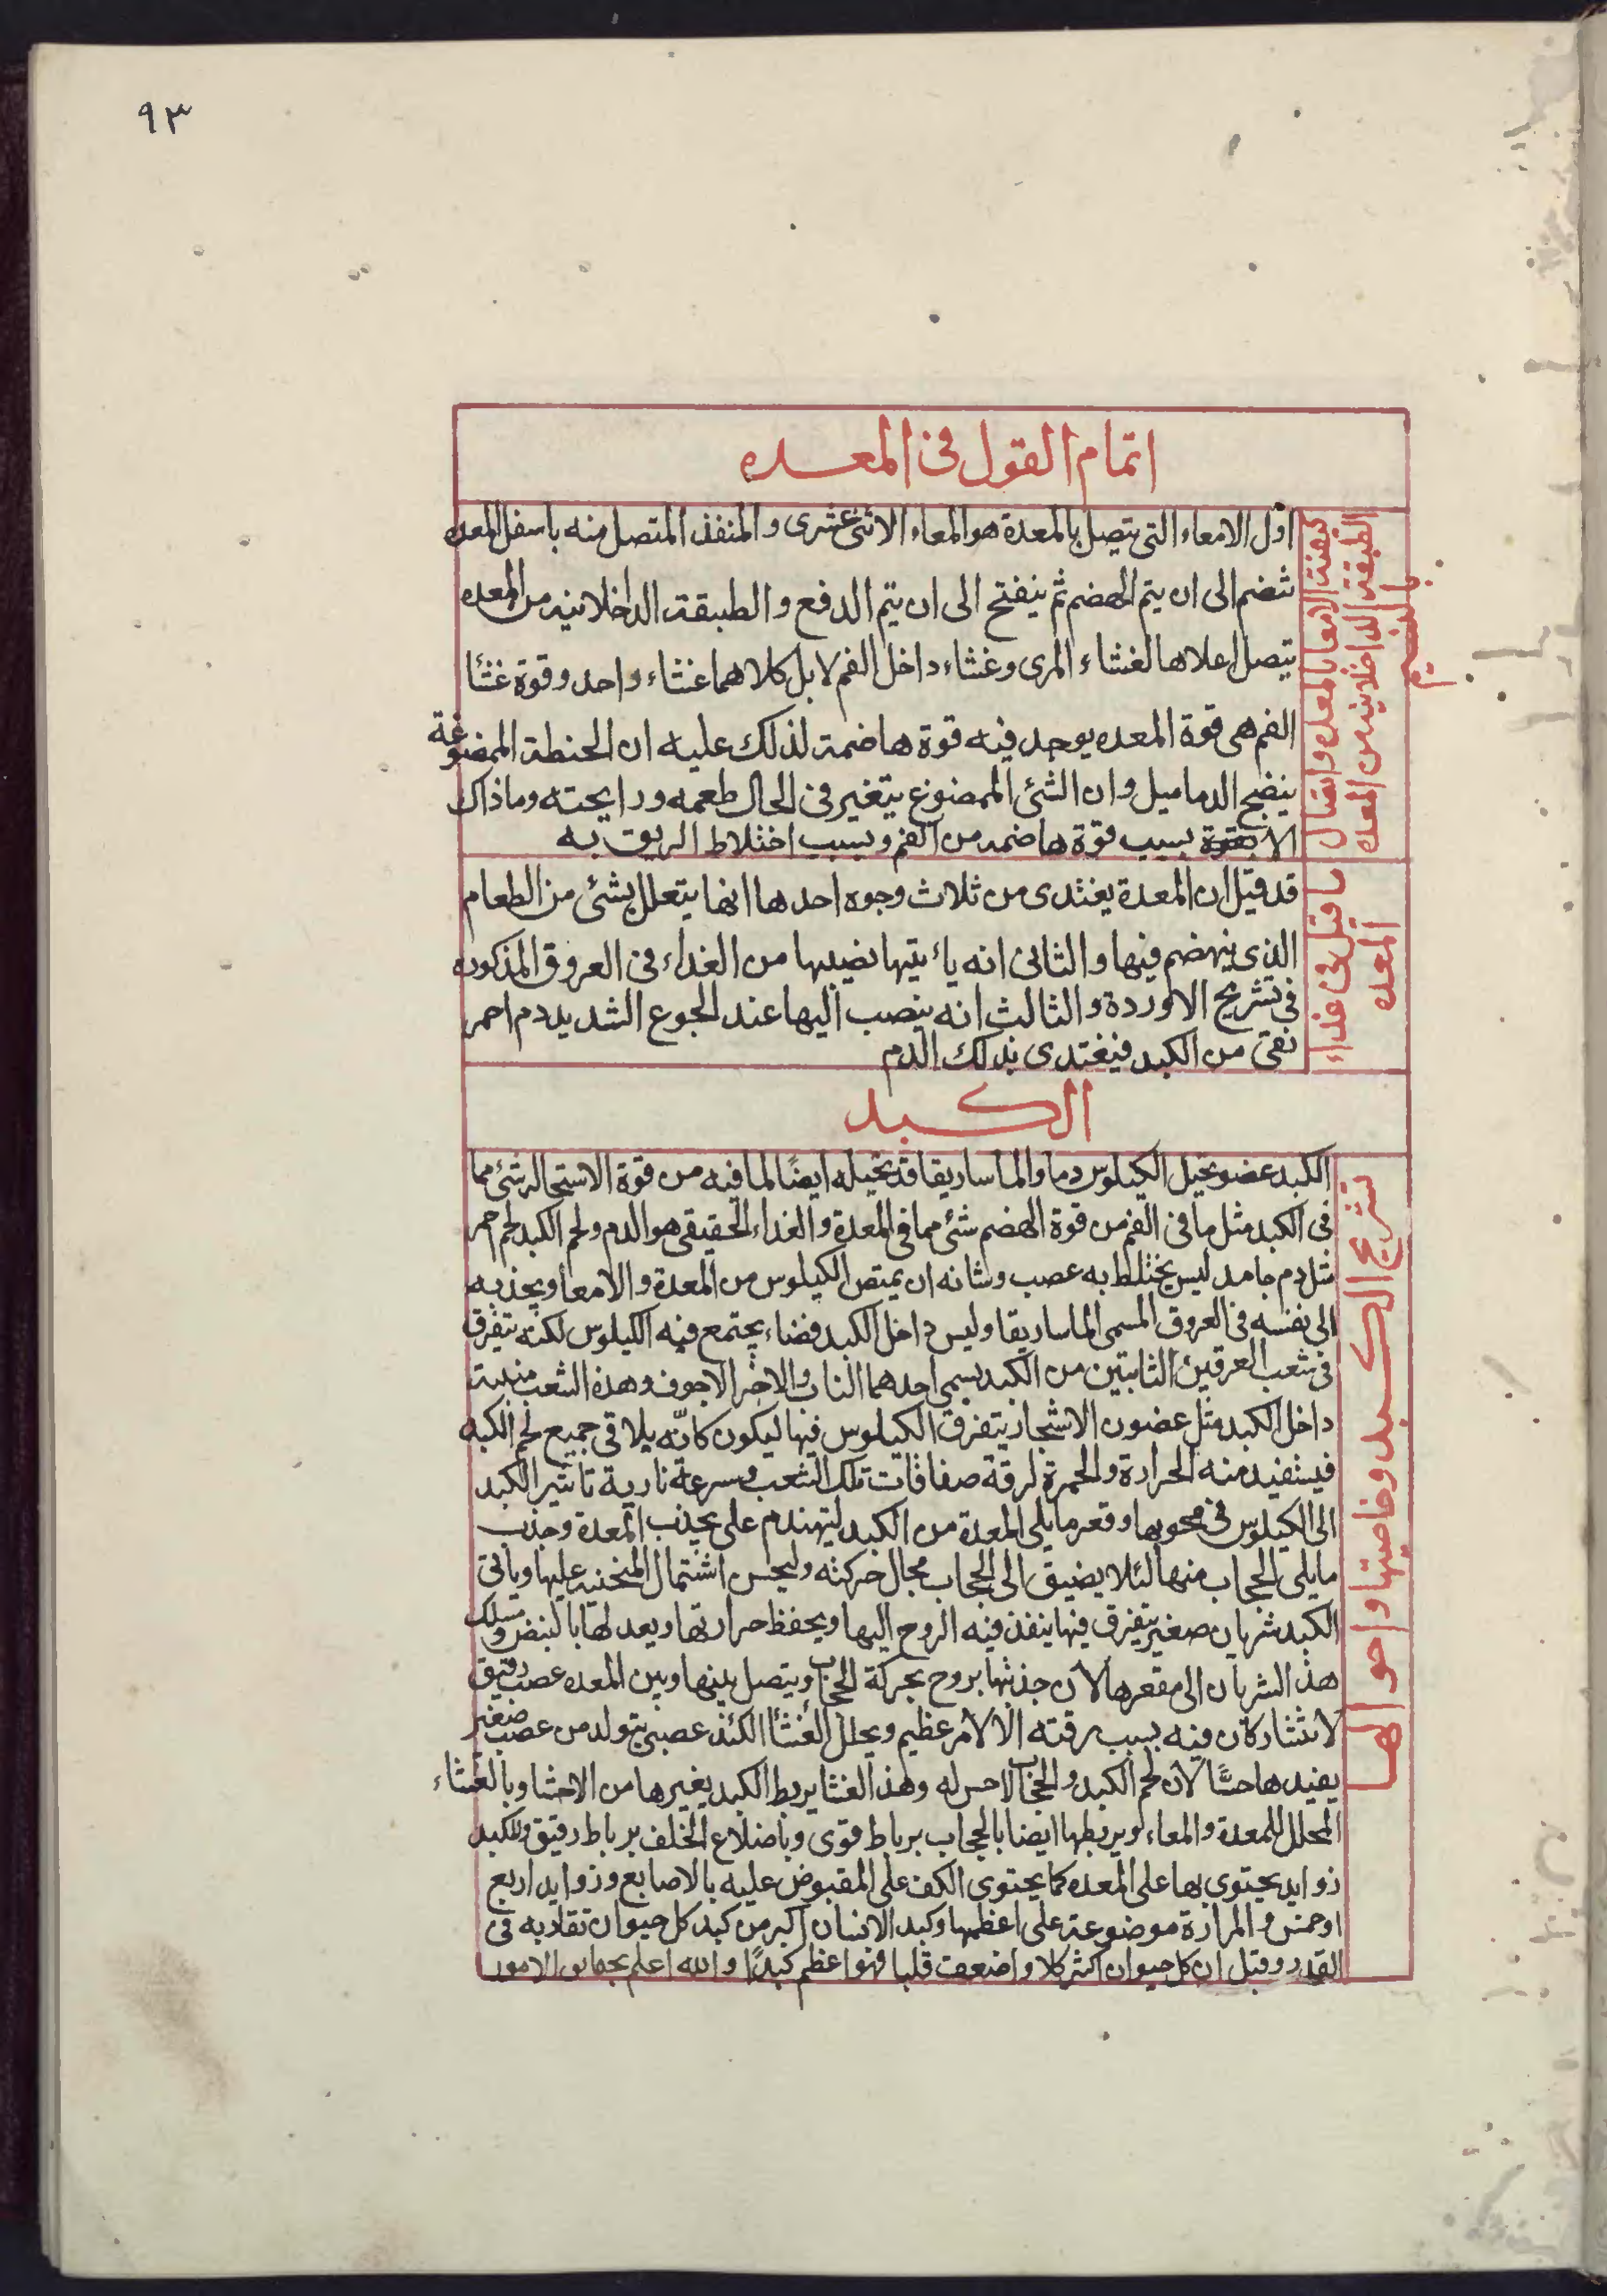 ٩٣
اتمام القول فى المعده
كيفية الامعا بالمعده واتصال
الطبقة الداخلانيه من المعده
بالفم
اول الامعاء التى يتصل بالمعدة هو المعاء الاثنى عشرى و المنفذ المتصل منه باسفل المعده
تنضم الى ان يتم الهضم ثم ينفتح الى ان يتم الدفع و الطبقة الداخلانيه من المعده
يتصل اعلاها لغشاء المرى وغشاء داخل الفم لا بل كلاهما غشاء واحد وقوة غشأ
الفم هى قوة المعده يوجد فيه قوة هاضمة لذلك عليه ان الحنطة الممضوغة
ينضج الدماميل وان الشئ الممضوغ يتغير فى الحال طعمه ورايحته وماذاك
الا بسبب قوة هاضمه من الفم وبسبب اختلاط الريق به
ما قيل فى غذاء
المعده
قد قيل ان المعدة يغتدى من ثلاث وجوه احدها انها يتعلل بشئ من الطعام
الذى ينهضم فيها والثانى انه يأتيها نصيبها من الغداء فى العروق المذكوره
فى تشريح الاوردة و الثالث انه ينصب اليها عند الجوع الشديد دم احمر
نقى من الكبد فيغتدى بذلك الدم
الكبد
تشريح الكبد وخاصيتها واحوالها
الكبد عضو يحيل الكيلوس دما والماساريقا قد يحيله ايضًا لما فيه من قوة الاستحالة شئ مما
فى الكبد مثل ما فى الفم من قوة الهضم شئ مما فى المعدة و الغداء الحقيقى هو الدم ولحم الكبد لحم احمر
مثل دم جامد ليس يختلط به عصب وشانه ان يمتص الكيلوس من المعدة و الامعا ويجذبه
الى نفسه فى العروق المسمى الماساريقا وليس داخل الكبد فضاء يجتمع فيه الكيلوس لكنه يتفرق
فى شعب العرقين الثابتين من الكبد يسمى احدهما الناب والاخر الاجوف وهذه الشعب منبتة
داخل الكبد مثل غضون الاشجار يتفرق الكيلوس فيها ليكون كانّه يلاقى جميع لحم الكبد
فيستفيد منه الحرارة والحمرة لرقة صفاقات تلك الشعب وسرعة تادية تاثير الكبد
الى الكيلوس فى محويها وقعر مايلى المعدة من الكبد ليتهندم على يحذب المعدة وحذب
مايلى الحجاب منها لئلا يضيق الى الحجاب مجال حركته وليحسن اشتمال المنحنيه عليها وياتى
الكبد شريان صغير يتفرق فيها ينفذ فيه الروح اليها ويحفظ حرارتها ويعدلها بالنبض وتسلك
هذ الشريان الى مقعرها لأن حذبتها يروح بحركة الحجاب ويتصل بينها وبين المعده عصب دقيق
لا يتشاركان فيه بسبب رقته الا لأمر عظيم ويجلل الغشأ الكبد عصبى يتولد من عصب صغير
يفيدها حسًا لأن لحم الكبد والحجاب لاحس له وهذ الغشا يربط الكبد بغيرها من الاحشا وبالغشاء
المجلل للمعدة والمعاء ويربطها ايضا بالحجاب برباط قوى وباضلاع الخلف برباط رقيق وللكبد
زوايد يحتوى بها على المعده كما يحتوى الكف على المقبوض عليه بالاصابع وزوايد اربع
اوخمس والمرارة موضوعة على اعظمها وكبد الانسان اكبر من كبد كل حيوان تقاربه فى
القدر وقيل ان كل حيوان اكثر اكلا واضعف قلبا فهو اعظم كبدًا والله اعلم بحقايق الامور